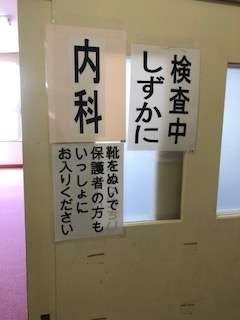 検査中
しずかに
内科
靴をぬいで
保護者の方も
いっしょに
お入りください